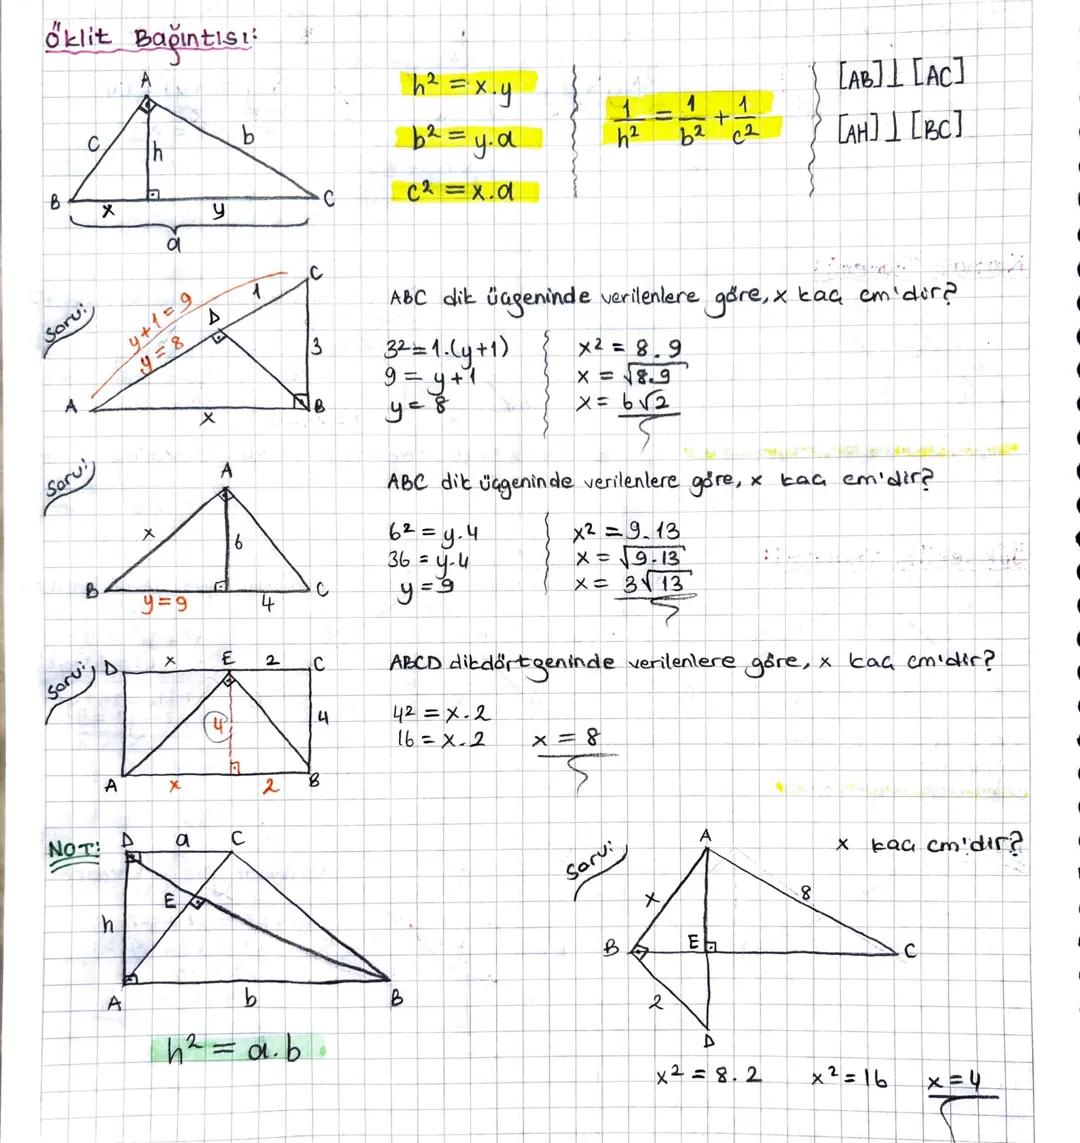 Öklit Bağıntısı:
A
c
b
h
B
x
y
C
a
h² = x.y
b² = y.a
c² = x.a
1/h² = 1/b² + 1/c²
[AB] ⊥ [AC]
[AH] ⊥ [BC]
Soru:
y+1=9
y=8
C
1
D
3
A
x
B
ABC dik üçgeninde verilenlere göre, x kaç cm'dir?
3² = 1.(y+1)
9 = y+1
y = 8
x² = 8.9
x = √8.9
x = 6√2
Soru:
A
x
6
B
y=9
4
C
ABC dik üçgeninde verilenlere göre, x kaç cm'dir?
6² = y.4
36 = y.4
y = 9
x² = 9.13
x = √9.13
x = 3√13
Soru:
D
x
E
2
C
4
4
A
x
2
B
ABCD dikdörtgeninde verilenlere göre, x kaç cm'dir?
4² = x.2
16 = x.2
x = 8
NOT:
D
a
C
E
h
A
b
B
h² = a.b
Soru:
A
x kaç cm'dir?
x
8
B
E
C
2
D
x² = 8.2
x² = 16
x = 4